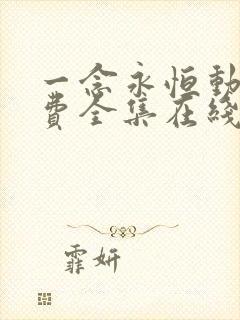 一念永恒动
费全集在线
霏妍